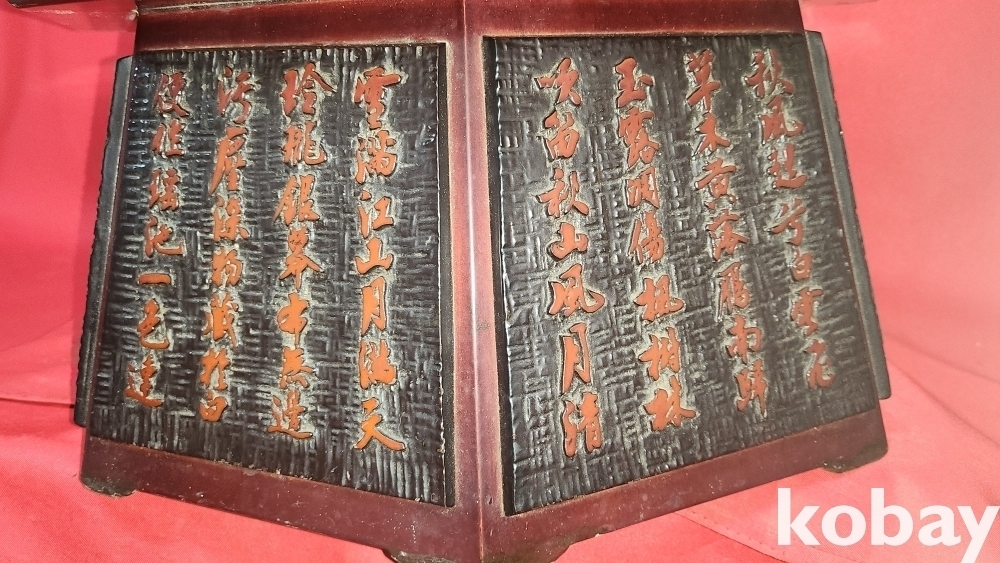 秋風起兮白雲飛
草木黃落雁南歸
玉露凋傷楓樹林
吹笛秋山風月清
雪滿江山月滿天
玲瓏銀本無邊
污塵物藏於白
瑤池一色連
kobay